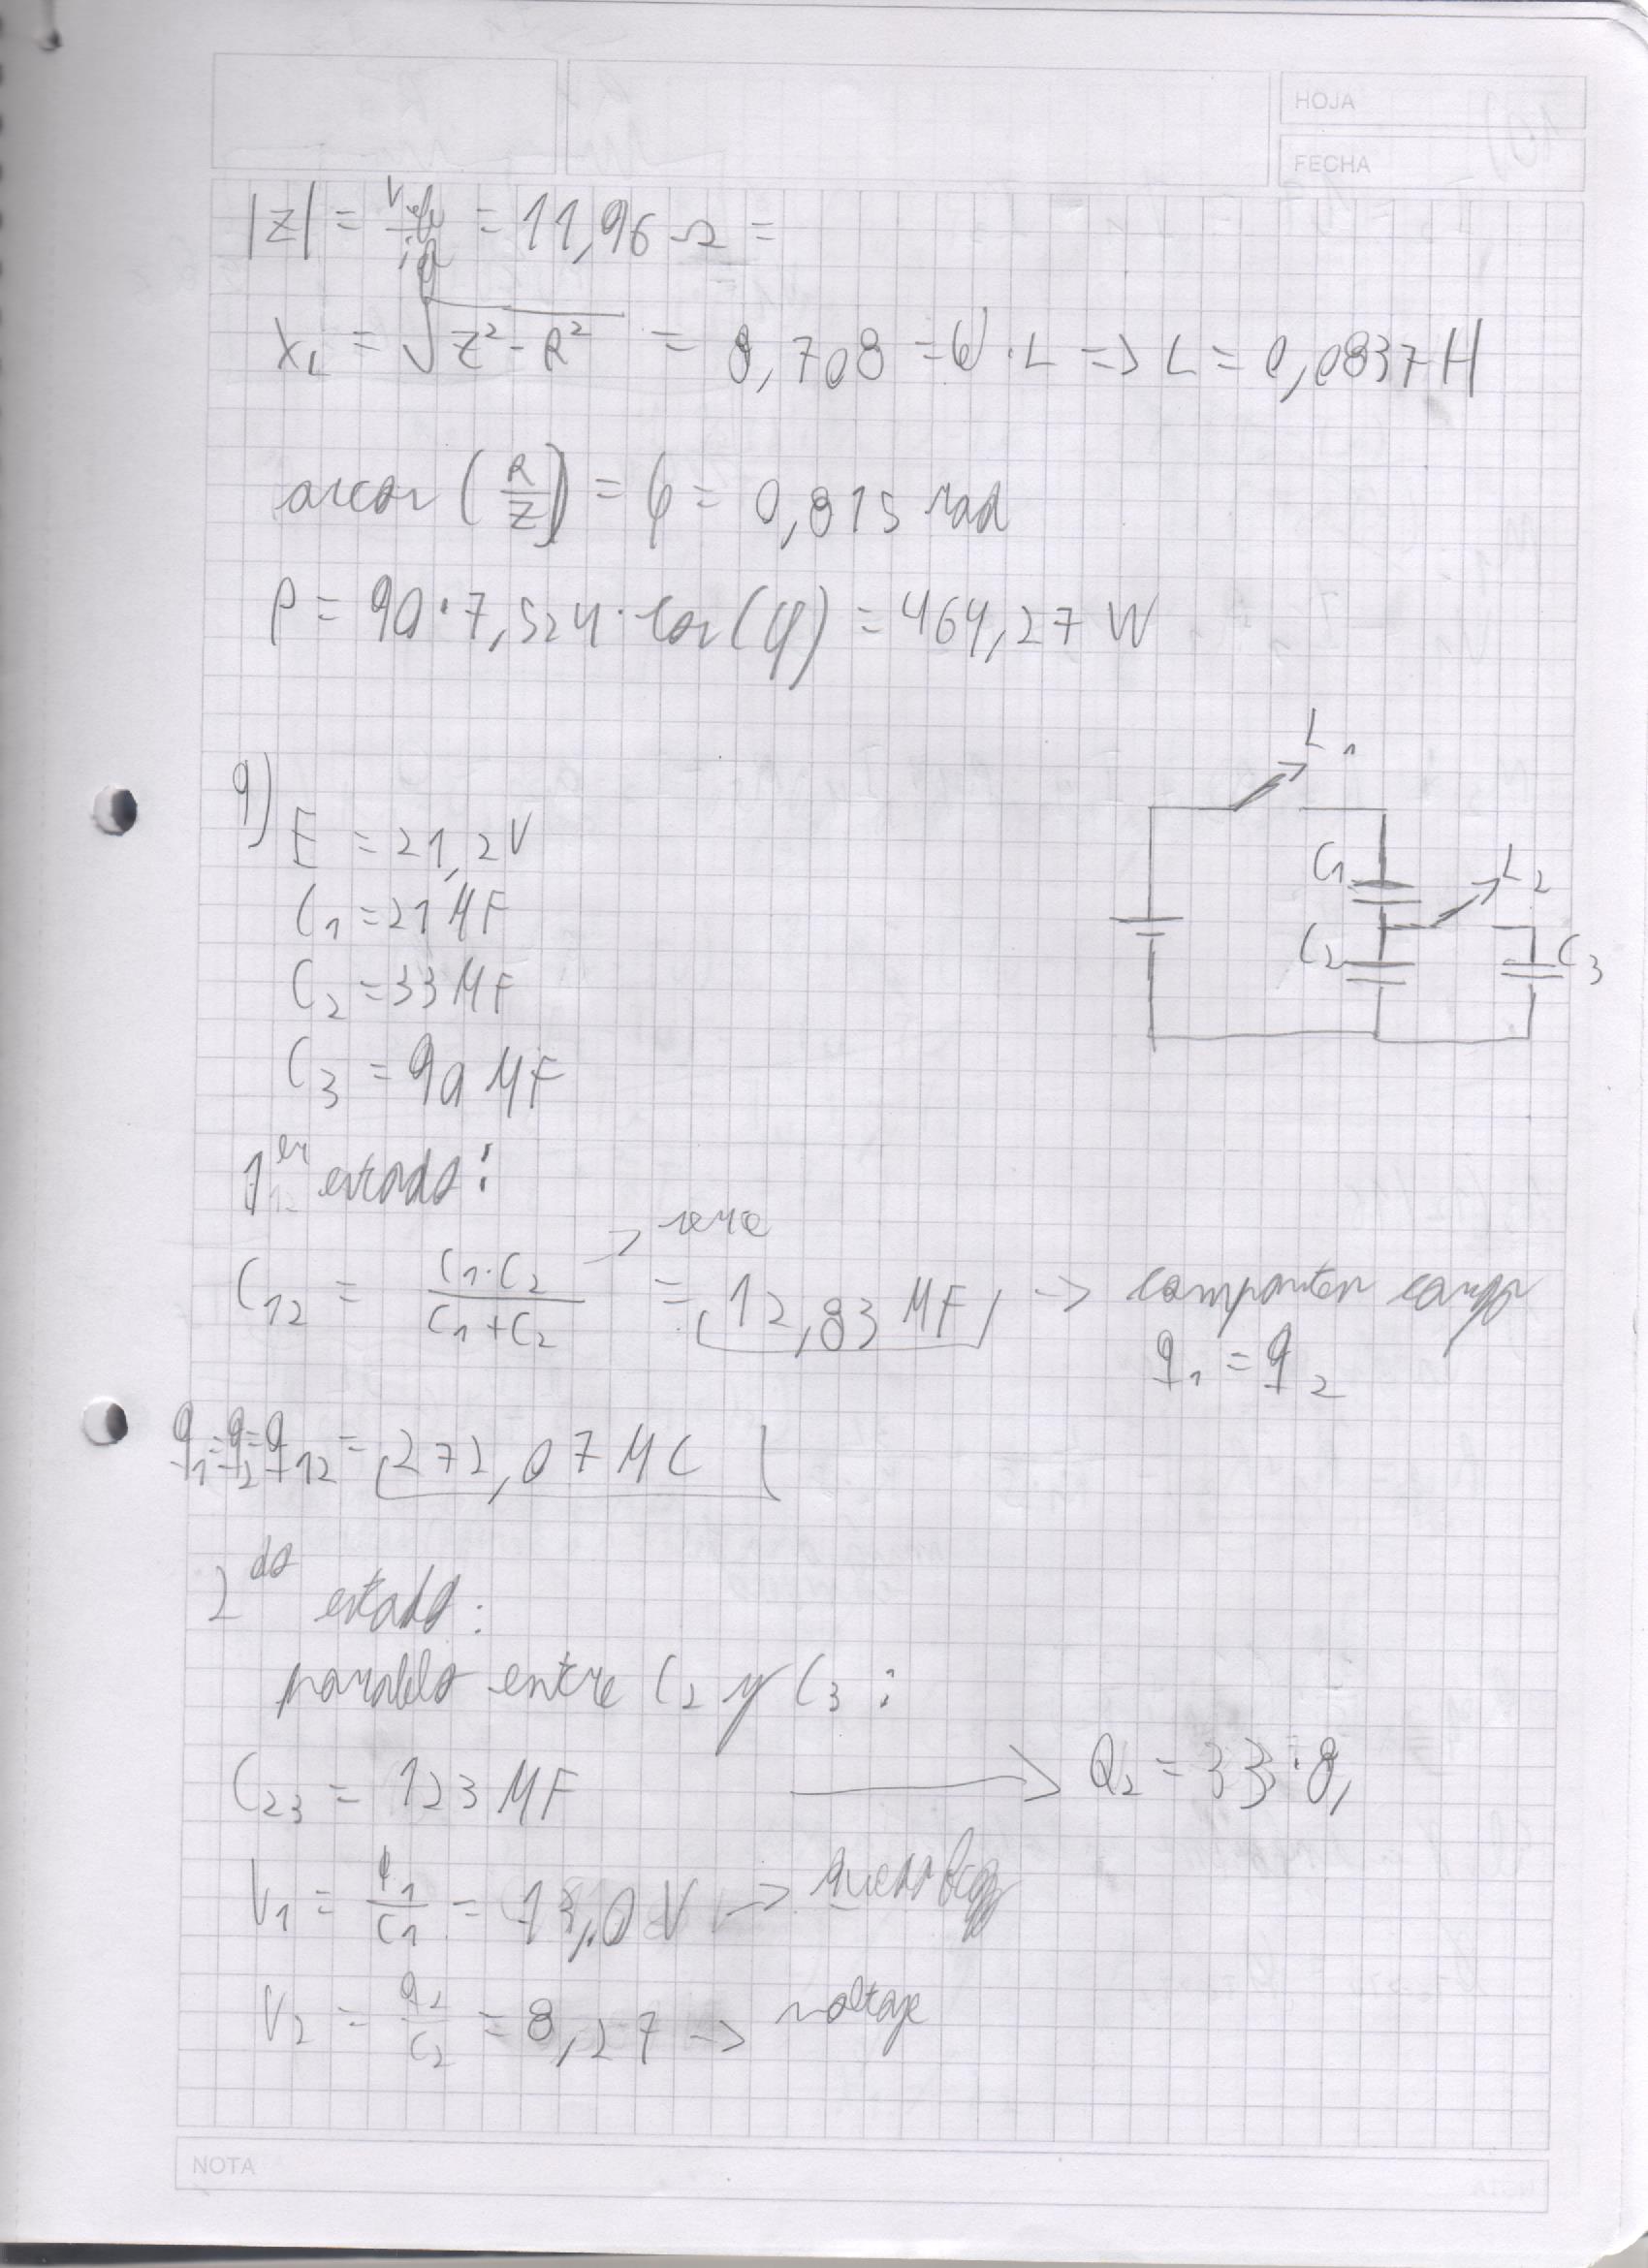 HOJA
FECHA
|Z| = Vef/ief = 11,96 Ω =
XL = √(Z² - R²) = 8,708 = W · L => L = 0,0837 H
arcos (R/Z) = φ = 0,815 rad
P = 90 · 7,524 · cos(φ) = 464,27 W
9)
E = 21,2 V
C1 = 21 MF
C2 = 33 MF
C3 = 90 MF
L1
C1
L2
C2
C3
1er estado:
C12 = C1·C2 / C1+C2 -> serie = 12,83 MF -> comparten carga
q1 = q2
q1=q2=q12 = 272,07 MC
2do estado:
paralelo entre C2 y C3 :
C23 = 123 MF -> Q2 = 33·8,
V1 = q1/C1 = 13,0 V ->
V2 = q2/C2 = 8,27 -> voltaje
NOTA